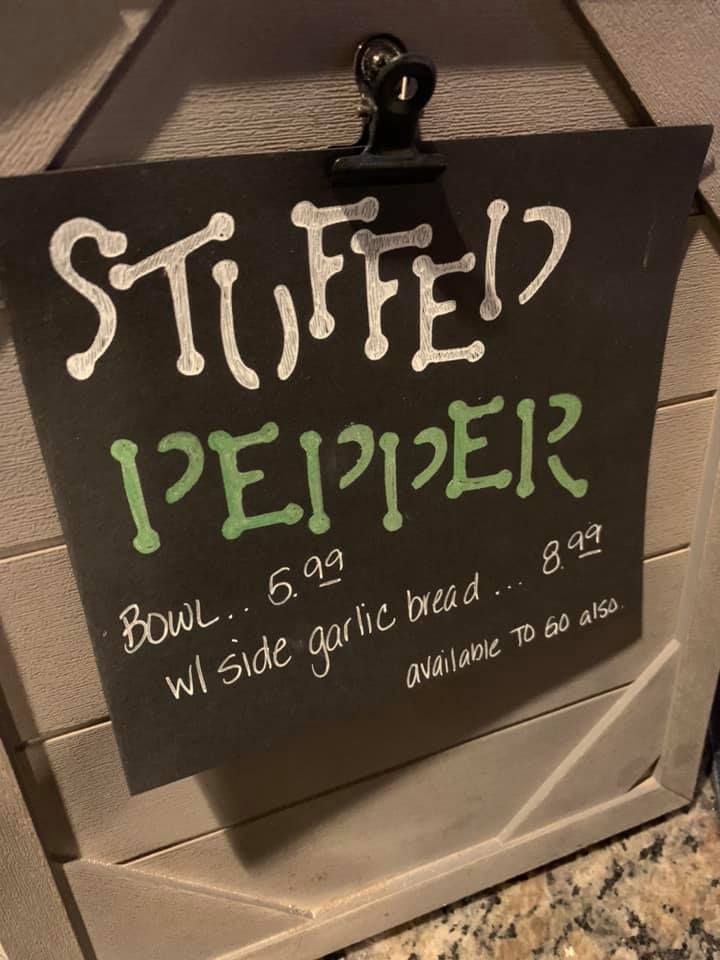 STUFFED
PEPPER
BOWL.. 5.99
w/ side garlic bread ... 8.99
available TO GO also.